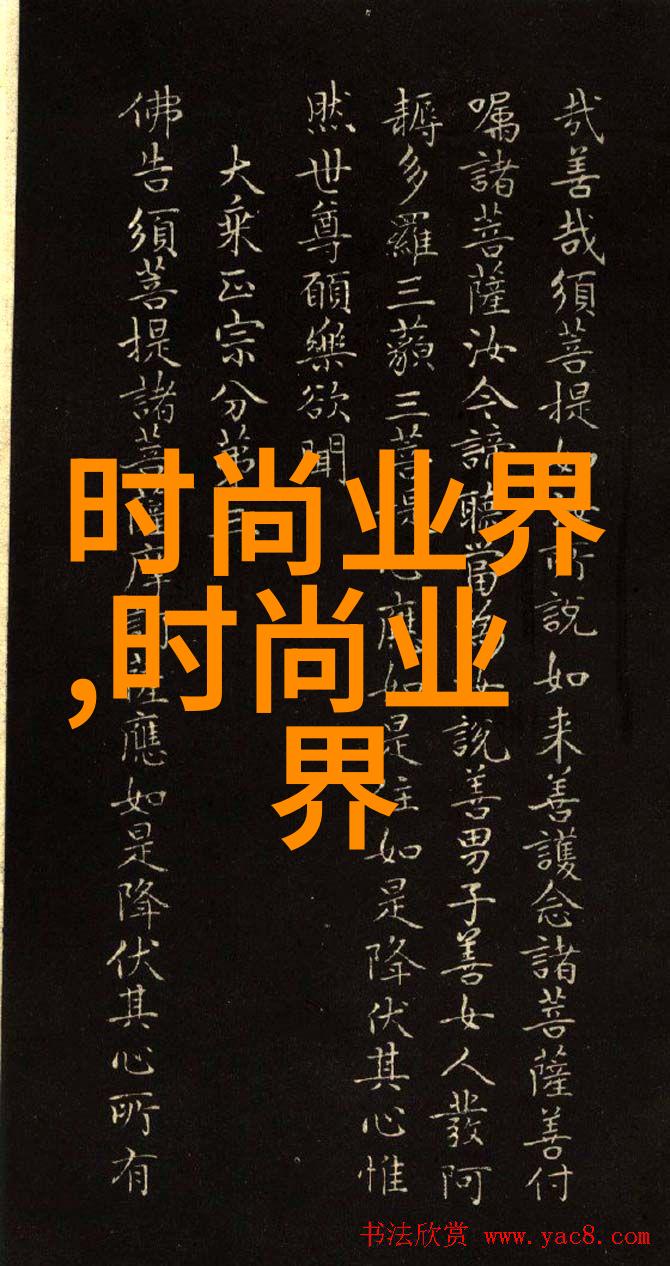 哉善哉須菩提如汝所說如来善護念諸菩薩善付
囑諸菩薩汝今諦聽當為汝說善男子善女人發阿
耨多羅三藐三菩提心應如是住如是降伏其心惟
然世尊願樂欲聞
大乗正宗分第三
佛告須菩提諸菩薩摩訶薩應如是降伏其心所有
时尚业界
,时尚业
界
书法欣赏 www.yac8.com